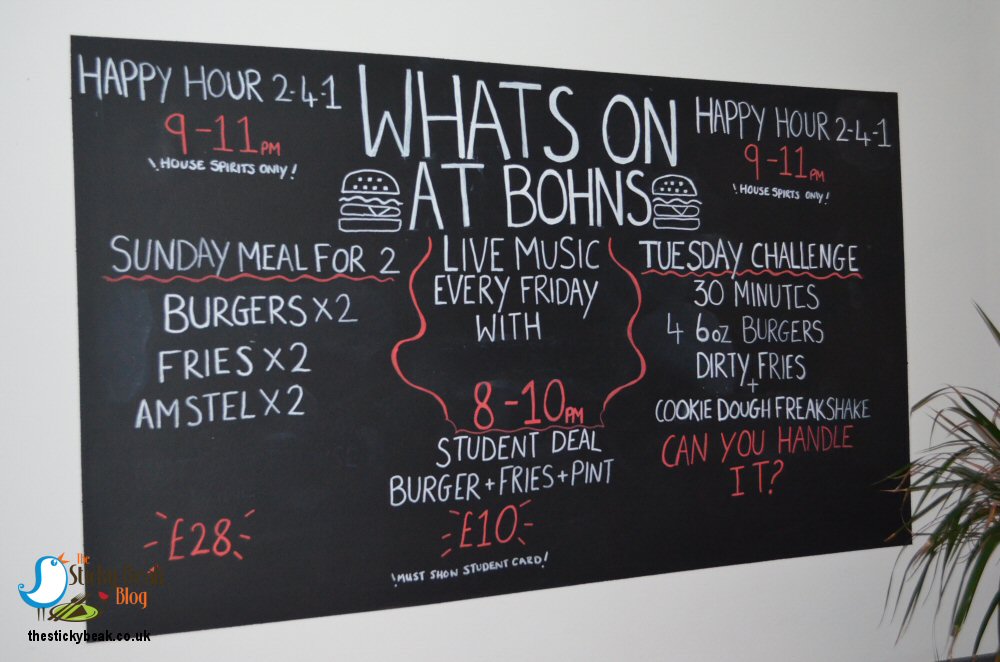 HAPPY HOUR 2-4-1
9-11PM
! HOUSE SPIRITS ONLY!
WHATS ON
AT BOHNS
HAPPY HOUR 2-4-1
9-11PM
! HOUSE SPIRTS ONLY!
SUNDAY MEAL FOR 2
BURGERS X2
FRIES X2
AMSTEL X2
£28
LIVE MUSIC
EVERY FRIDAY
WITH
8-10PM
STUDENT DEAL
BURGER+FRIES+PINT
£10
!MUST SHOW STUDENT CARD!
TUESDAY CHALLENGE
30 MINUTES
4 6oz BURGERS
DIRTY FRIES
+
COOKIE DOUGH FREAKSHAKE
CAN YOU HANDLE
IT?
The
StickyBeak
Blog
thestickybeak.co.uk